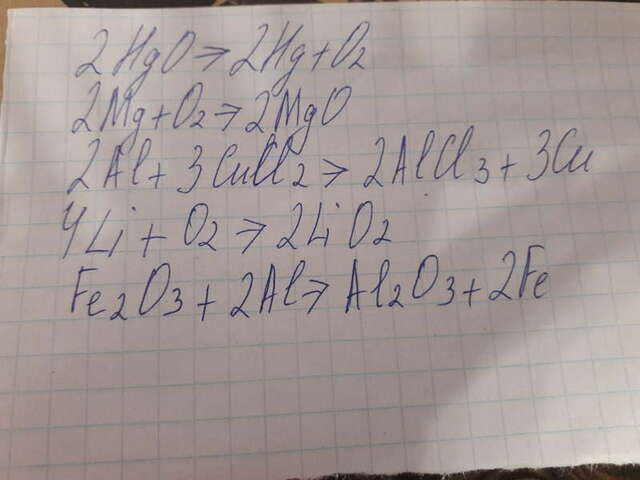 2HgO → 2Hg + O2
2Mg + O2 → 2MgO
2Al + 3CuCl2 → 2AlCl3 + 3Cu
4Li + O2 → 2LiO2
Fe2O3 + 2Al → Al2O3 + 2Fe